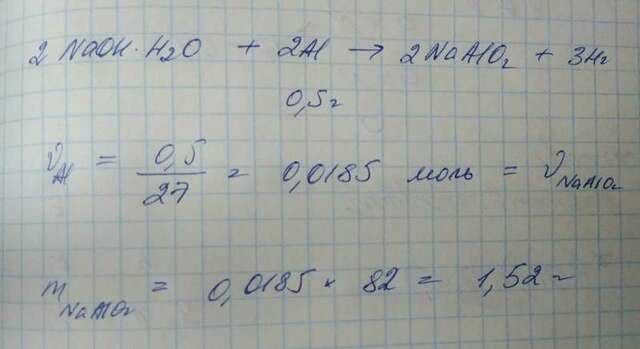 2 NaOH·H2O + 2Al → 2NaAlO2 + 3H2
0,5г
νAl = 0,5/27 = 0,0185 моль = νNaAlO2
mNaAlO2 = 0,0185 × 82 = 1,52г